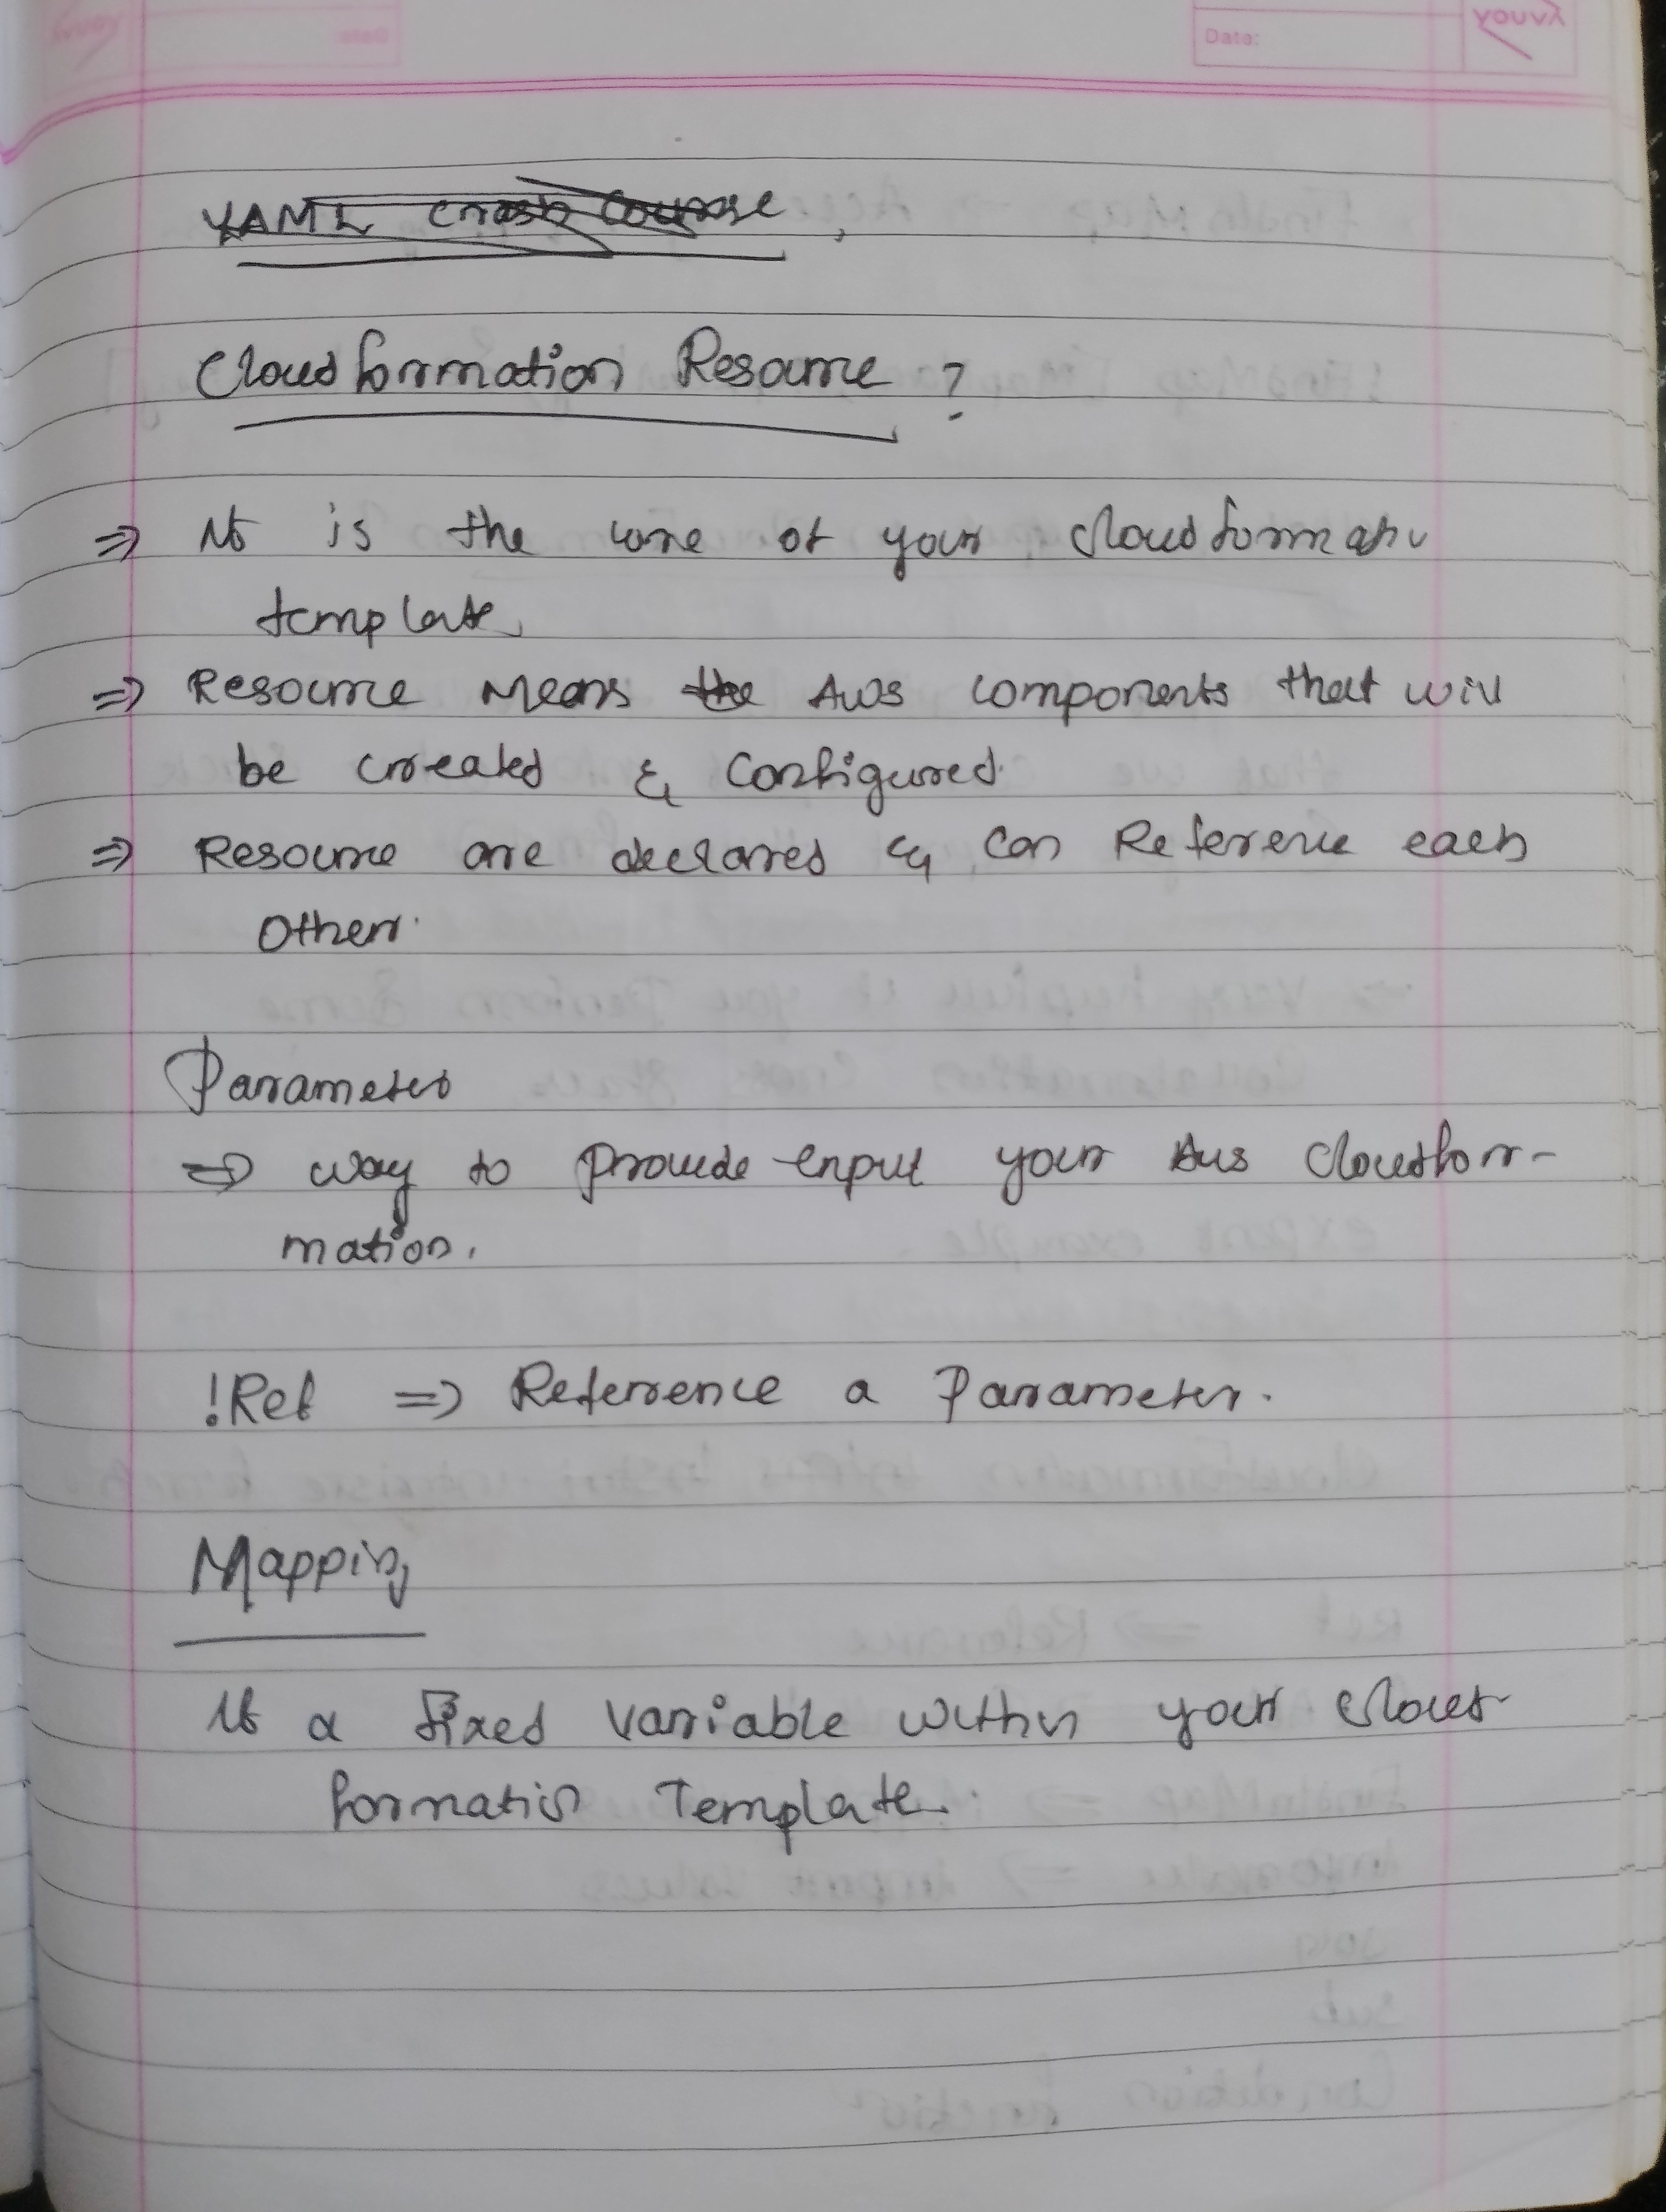 Date:
YAML Crash Course,
Cloudformation Resource ?
⇒ It is the core of your cloudformatin
template
⇒ Resource Means the AWS components that will
be created & Configured.
⇒ Resource are declared & can Reference each
Other.
Parameters
⇒ way to provide input your Aws Cloudfor-
mation.
!Ref ⇒ Reference a Parameter.
Mapping
It a fixed variable within your Cloud
formation Template.